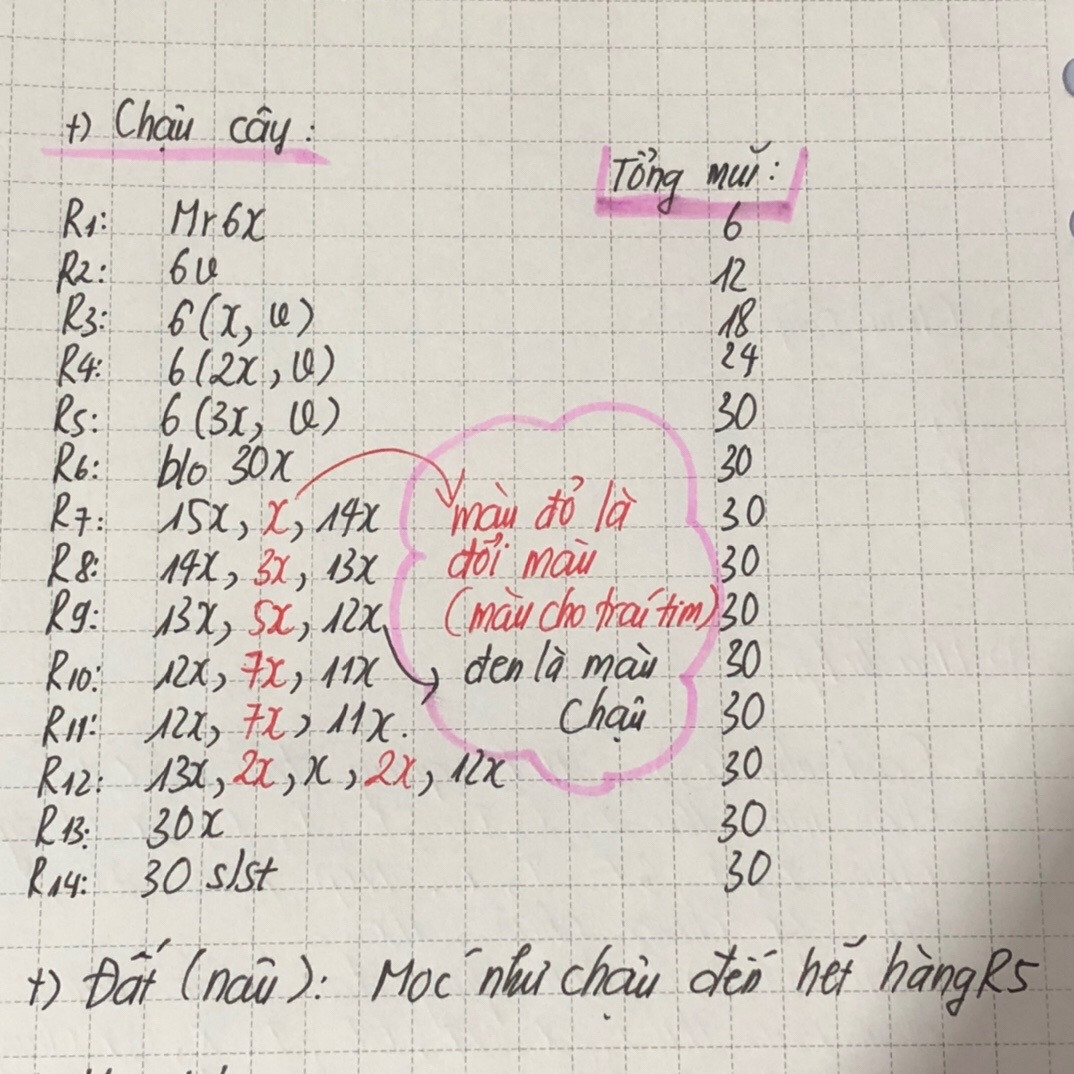 +) Chậu cây:
Tổng mũi:
R1: Mr6x 6
R2: 6v 12
R3: 6(x, v) 18
R4: 6(2x, v) 24
R5: 6(3x, v) 30
R6: blo 30x 30
R7: 15x, x, 14x màu đỏ là 30
R8: 14x, 3x, 13x đổi màu 30
R9: 13x, 5x, 12x (màu cho trái tim) 30
R10: 12x, 7x, 11x đen là màu 30
R11: 12x, 7x, 11x. Chậu 30
R12: 13x, 2x, x, 2x, 12x 30
R13: 30x 30
R14: 30 slst 30
+) Đất (nâu): Móc như chậu đến hết hàng R5